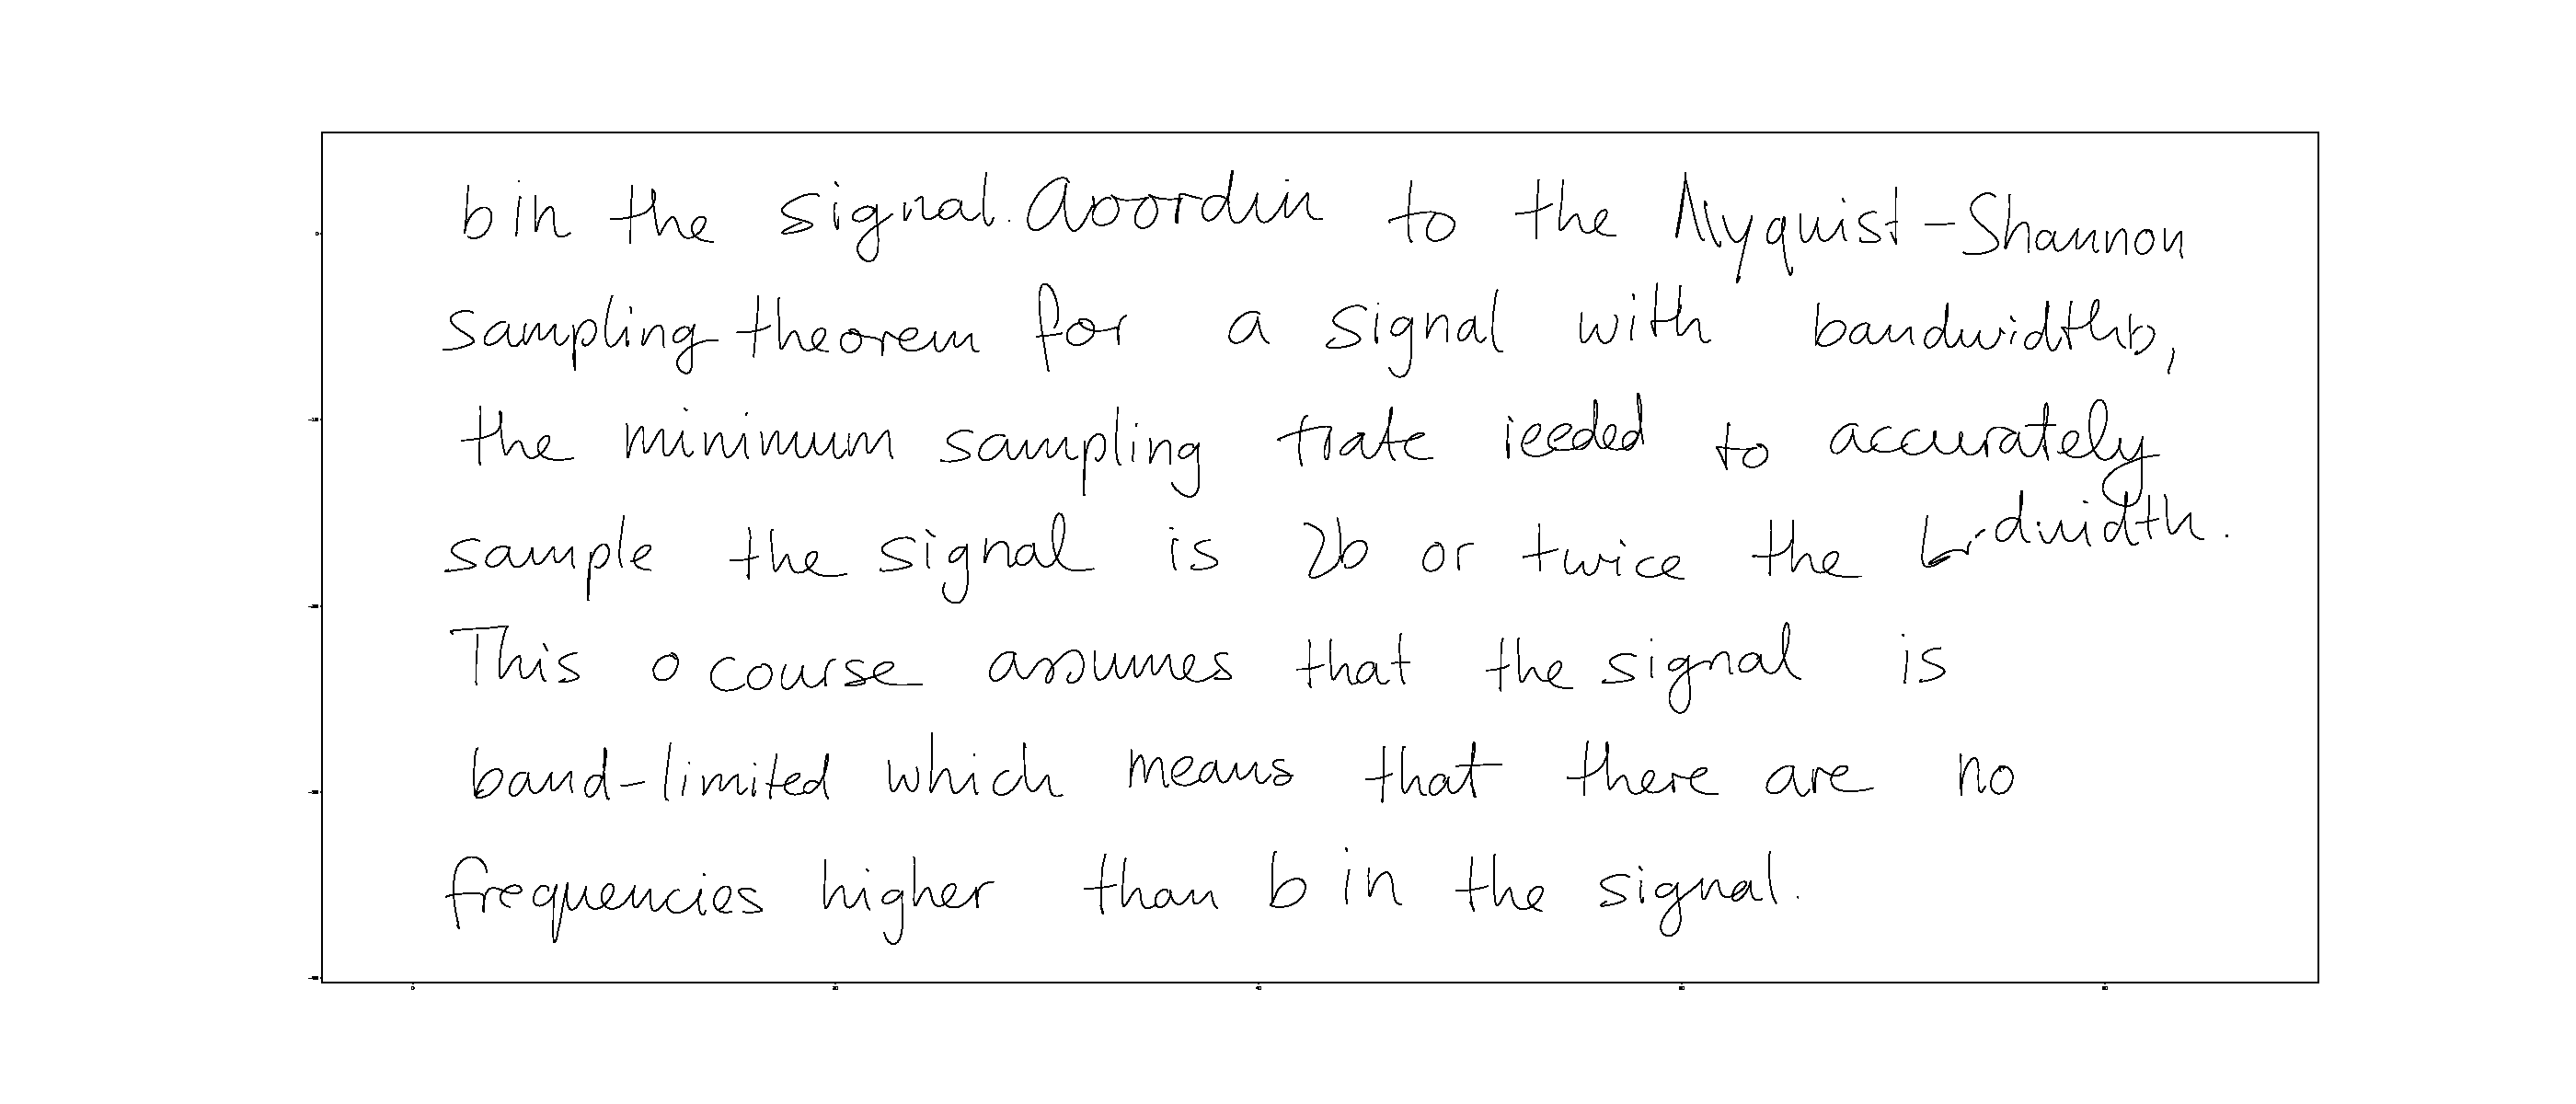 b in the signal. Acordin to the Nyquist-Shannon
sampling theorem for a signal with bandwidth b,
the minimum sampling rate needed to accurately
sample the signal is 2b or twice the
This o course assumes that the signal is
band-limited which means that there are no
frequencies higher than b in the signal.